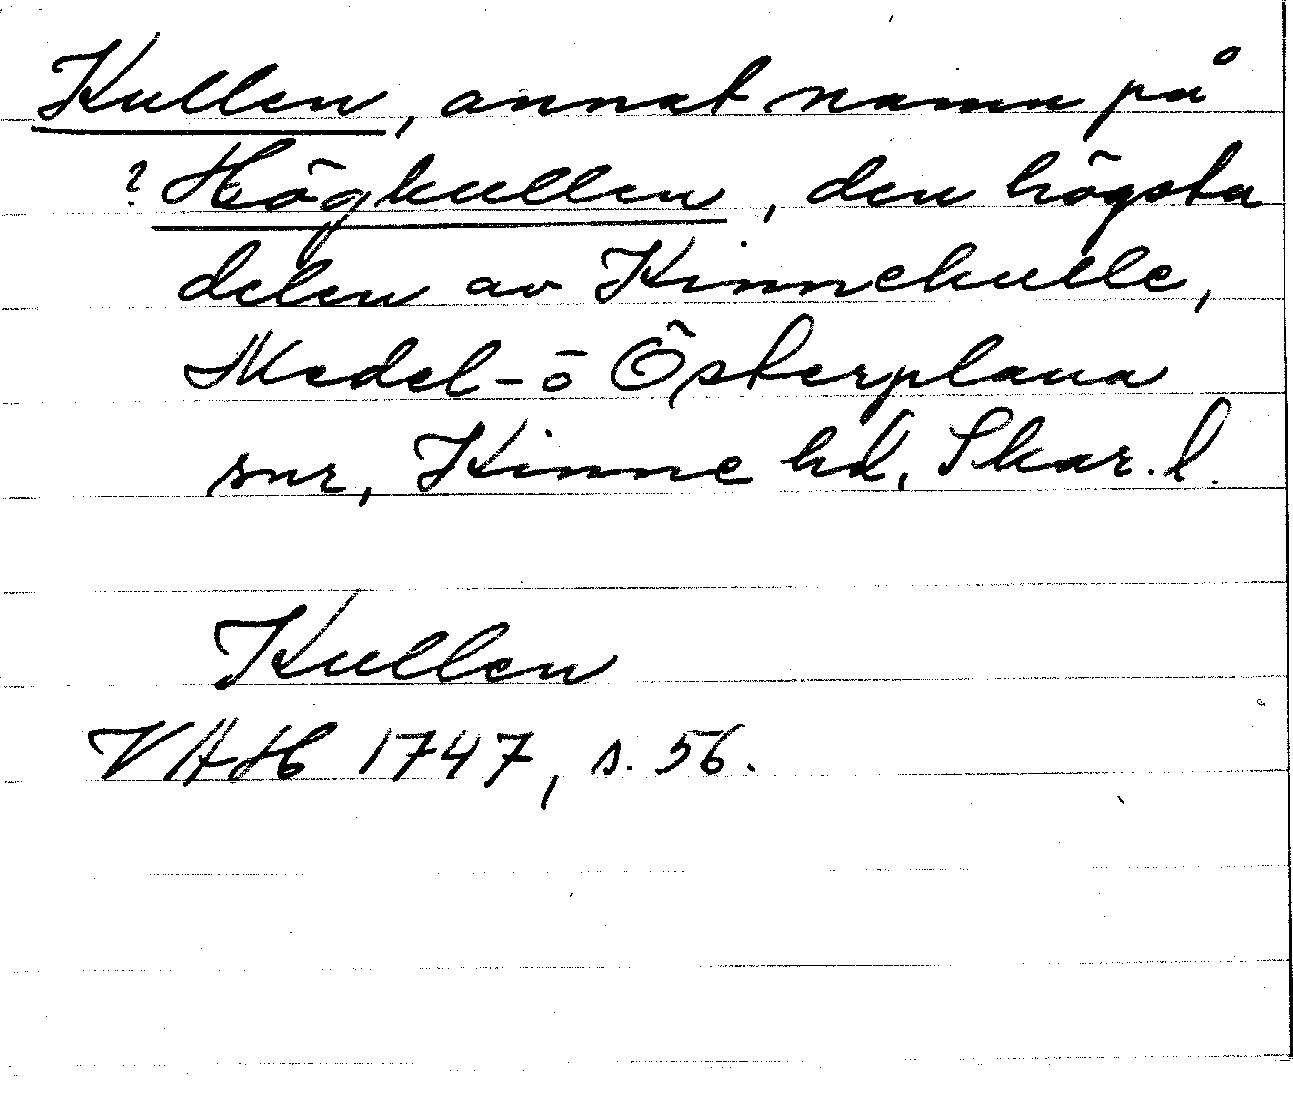 Kullen, annat namn på
? Högkullen, den högsta
delen av Kinnekulle,
Medel- o Österplana
snr, Kinne hd, Skar. l.
Kullen
VAH 1747, s. 56.